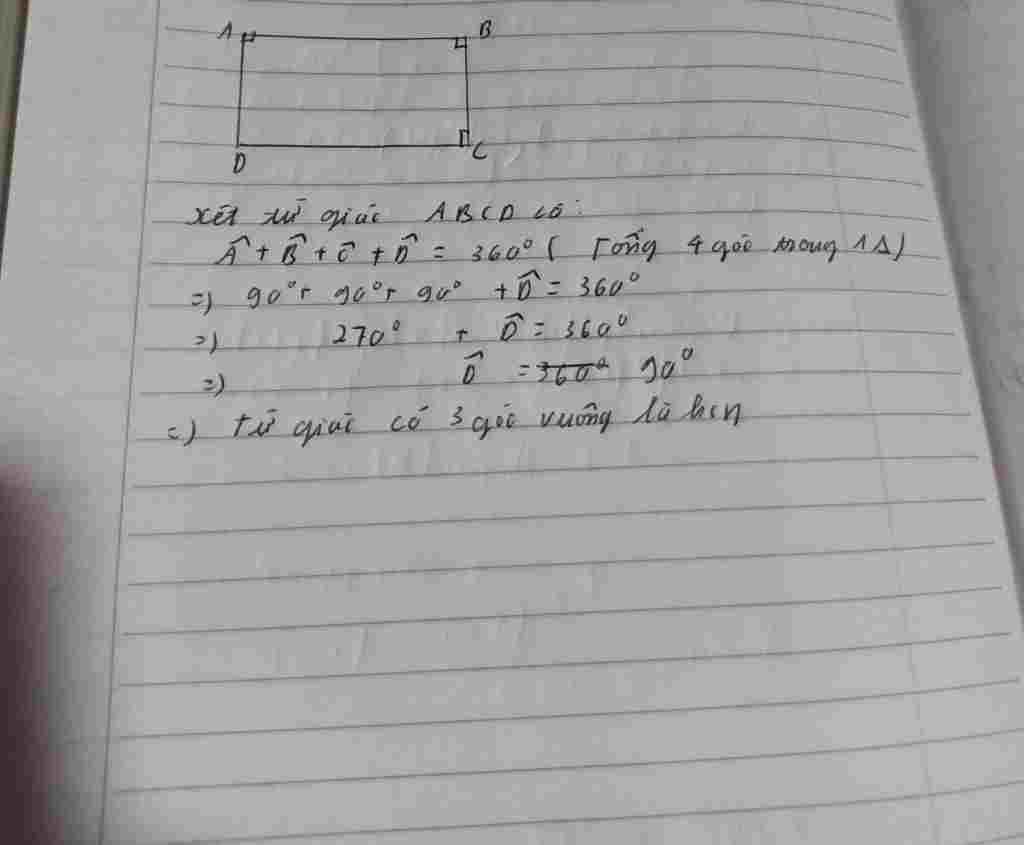 A B
D C
Xét tứ giác ABCD có:
Â + B̂ + Ĉ + D̂ = 360° ( Tổng 4 góc trong 1Δ)
=) 90° + 90° + 90° + D̂ = 360°
=) 270° + D̂ = 360°
=) D̂ = 360° 90°
=) tứ giác có 3 góc vuông là hcn